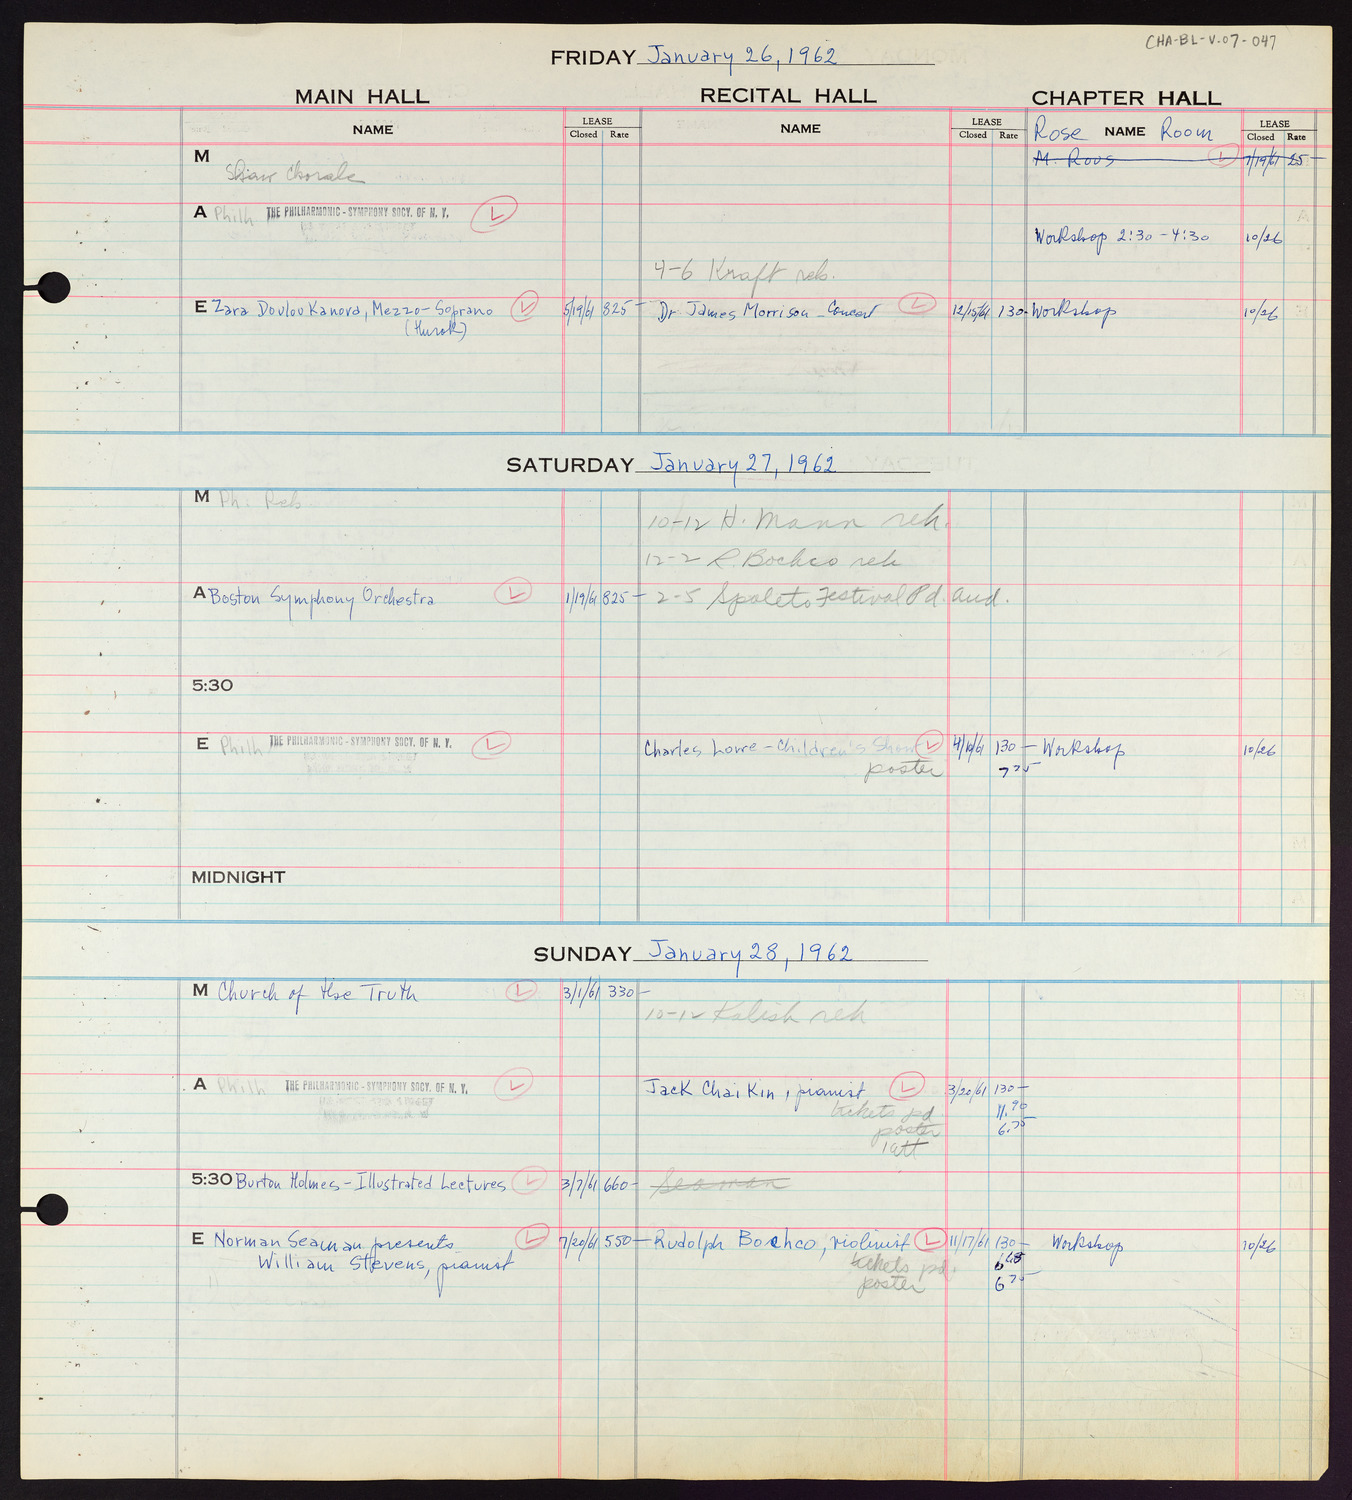 CHA-BL-V.07-047
FRIDAY January 26, 1962
MAIN HALL RECITAL HALL CHAPTER HALL
NAME LEASE Closed Rate NAME LEASE Closed Rate Rose NAME Room LEASE Closed Rate
M Shaw Chorale M. Roos L 7/19/61 25-
A Philh. THE PHILHARMONIC-SYMPHONY SOCY. OF N. Y. L
Workshop 2:30-4:30 10/26
4-6 Kraft reh.
E Zara Doulou Kanova, Mezzo-Soprano L 5/19/61 825- Dr. James Morrison - Concert L 12/15/61 130- Workshop 10/26
(Hurok)
SATURDAY January 27, 1962
M Ph. Reh.
10-12 H. Mann reh.
12-2 R. Bochco reh
A Boston Symphony Orchestra L 1/19/61 825- 2-5 Spoleto Festival Pd. aud.
5:30
E Philh THE PHILHARMONIC-SYMPHONY SOCY. OF N. Y. L Charles Lowe - Children's Show L 130- Workshop 10/26
poster 7 75
MIDNIGHT
SUNDAY January 28, 1962
M Church of the Truth L 3/1/61 330-
10-12 Kalish reh
A Philh THE PHILHARMONIC-SYMPHONY SOCY. OF N. Y. L Jack Chaikin, pianist L 3/20/61 130-
tickets pd 11.90
poster 6.75
1 att
5:30 Burton Holmes - Illustrated Lectures L 3/7/61 660- Seaman
E Norman Seaman presents L 7/20/61 550- Rudolph Bochco, violinist L 11/17/61 130- Workshop 10/26
William Stevens, pianist tickets pd.
poster 6 75